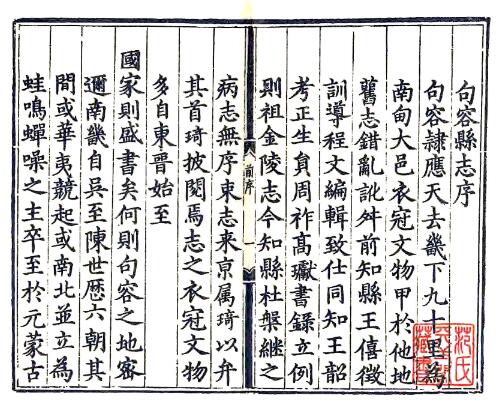 句容縣志序
句容隸應天去畿下九十里為
南甸大邑衣冠文物甲於他地
舊志錯亂訛舛前知縣王僖徵
訓導程文編輯致仕同知王韶
考正生員周祚高瓛書錄立例
則祖金陵志今知縣杜槃繼之
病志無序束志来京属琦以弁
其首琦披閱焉志之衣冠文物
多自東晋始至
國家則盛書矣何則句容之地密
邇南畿自吳至陳世歴六朝其
間或華夷競起或南北並立為
蛙鳴蟬噪之主卒至於元蒙古
首序
一
范氏
天一閣
藏書